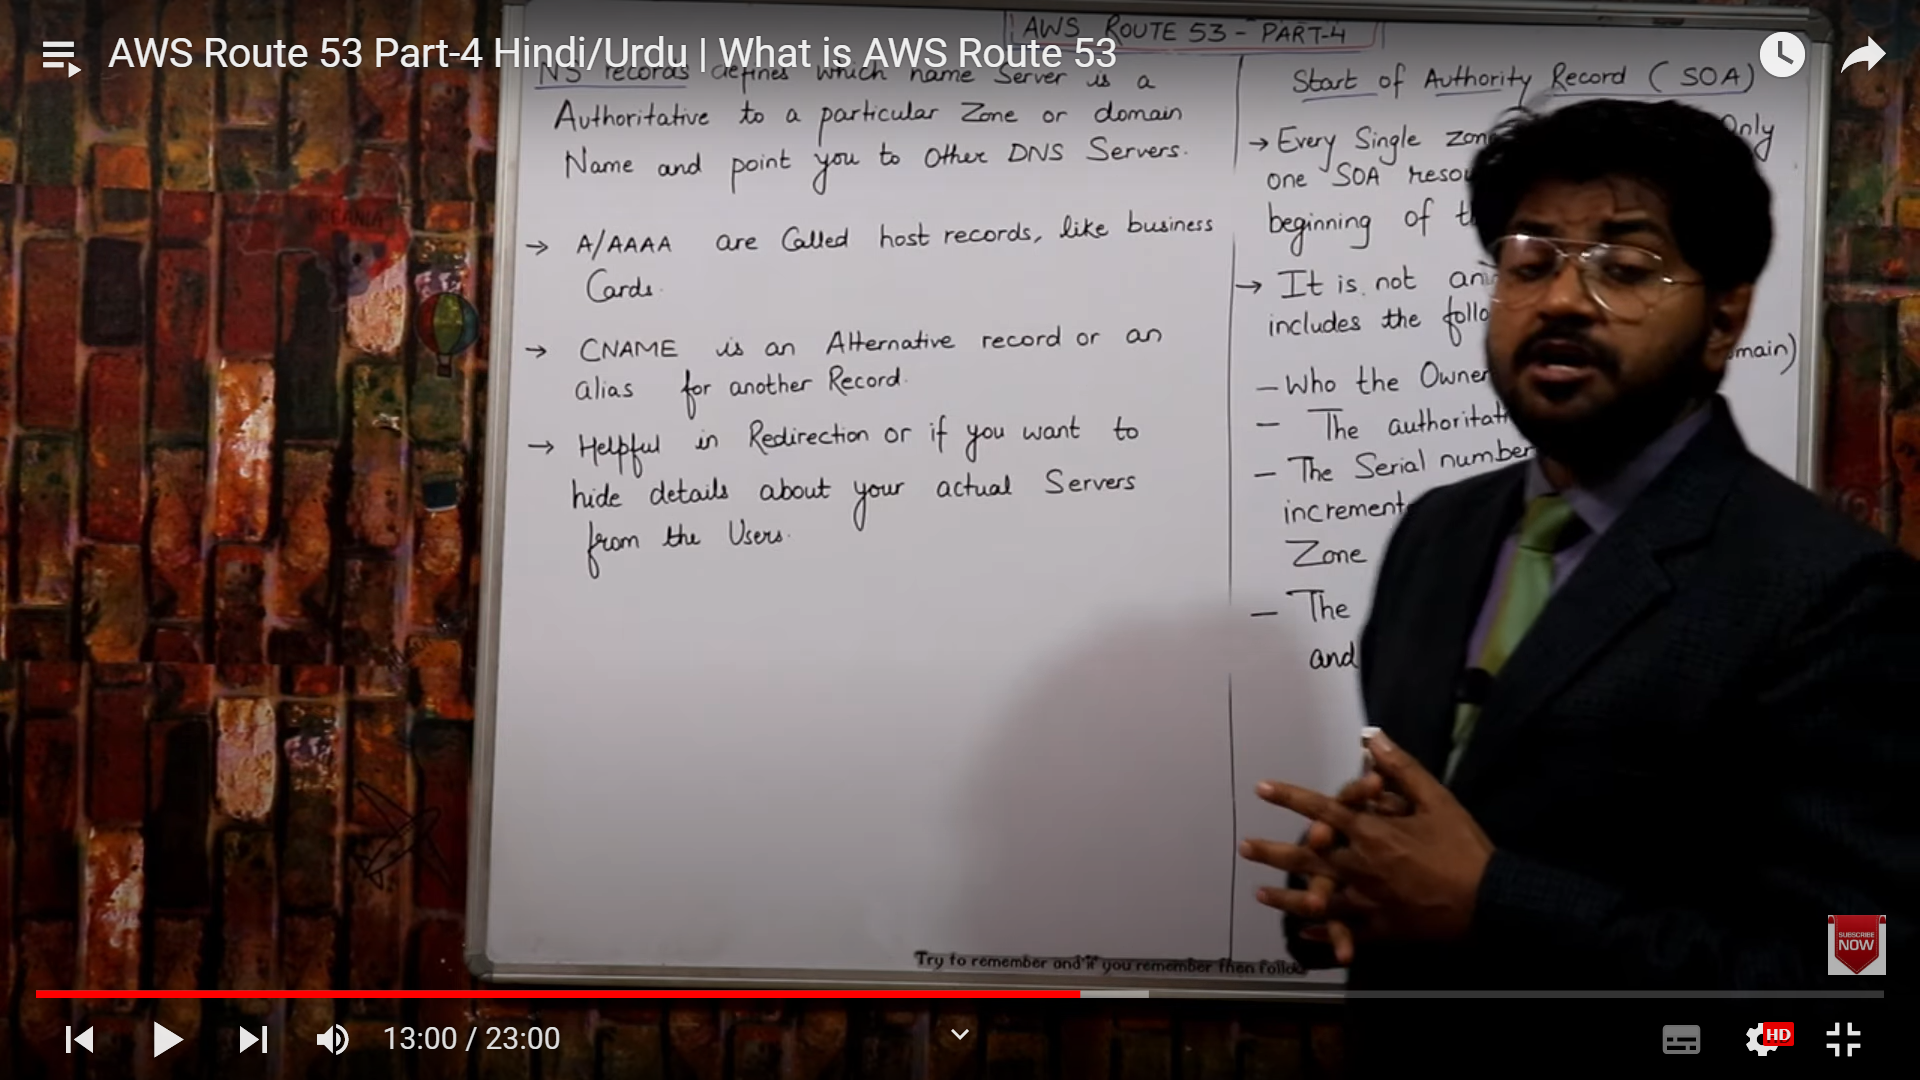 AWS Route 53 Part-4 Hindi/Urdu | What is AWS Route 53
AWS ROUTE 53 - PART-4
NS records defines which name Server is a
Authoritative to a particular Zone or domain
Name and point you to Other DNS Servers.
→ A/AAAA are Called host records, like business
Cards.
→ CNAME is an Alternative record or an
alias for another Record.
→ Helpful in Redirection or if you want to
hide details about your actual Servers
from the Users.
Start of Authority Record (SOA)
→ Every Single Only
one SOA
beginning of
→ It is not
includes the
- Who the Owner
- The
- The Serial number
Zone
- The
and
Try to remember and if you remember then
SUBSCRIBE
NOW
13:00 / 23:00
HD